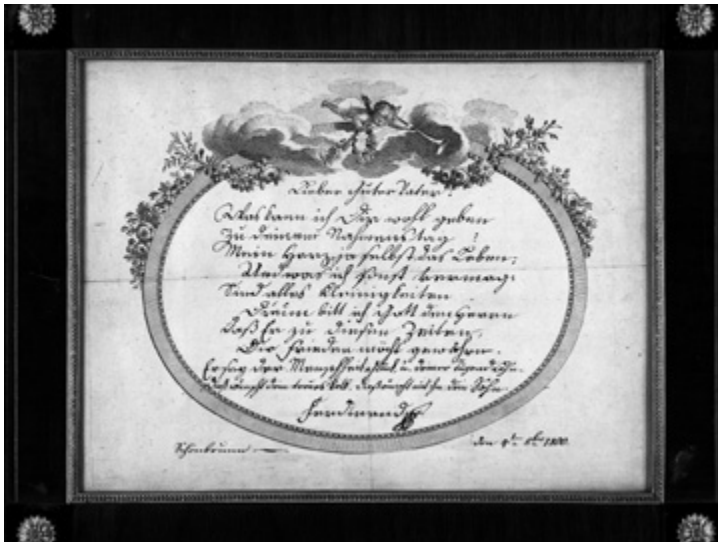 Lieber guter Vater!
Was kann ich Dir wohl geben
Zu deinem Nahmenstag?
Mein Herz, ja selbst das Leben,
Und was ich sonst vermag:
Sind alles Kleinigkeiten
Drum bitt ich Gott den Herrn
Daß Er zu diesen Zeiten,
Dir Frieden möcht gewähren.
der Menschheit u. deiner
wünscht dein treues Volk, der Sohn
Ferdinand
Schönbrunn
den 4ten 8ber 1800.